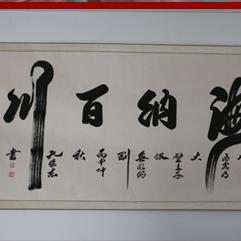 海納百川
容乃
大
壁立千
仞
無欲則
剛
丙申仲
秋
書